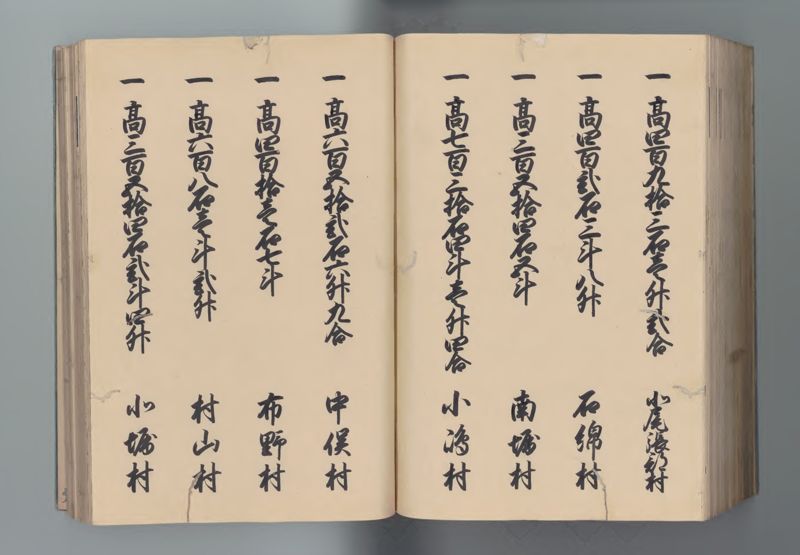 一 高四百九拾三石壱升弐合 北尾張部村
一 高四百弐石三斗八升 石綿村
一 高三百五拾四石五斗 南堀村
一 高七百三拾石四斗壱升四合 小嶋村
一 高六百五拾弐石六升九合 中俣村
一 高四百拾壱石七斗 布野村
一 高六百八石壱斗弐升 村山村
一 高三百五拾四石弐斗四升 北堀村